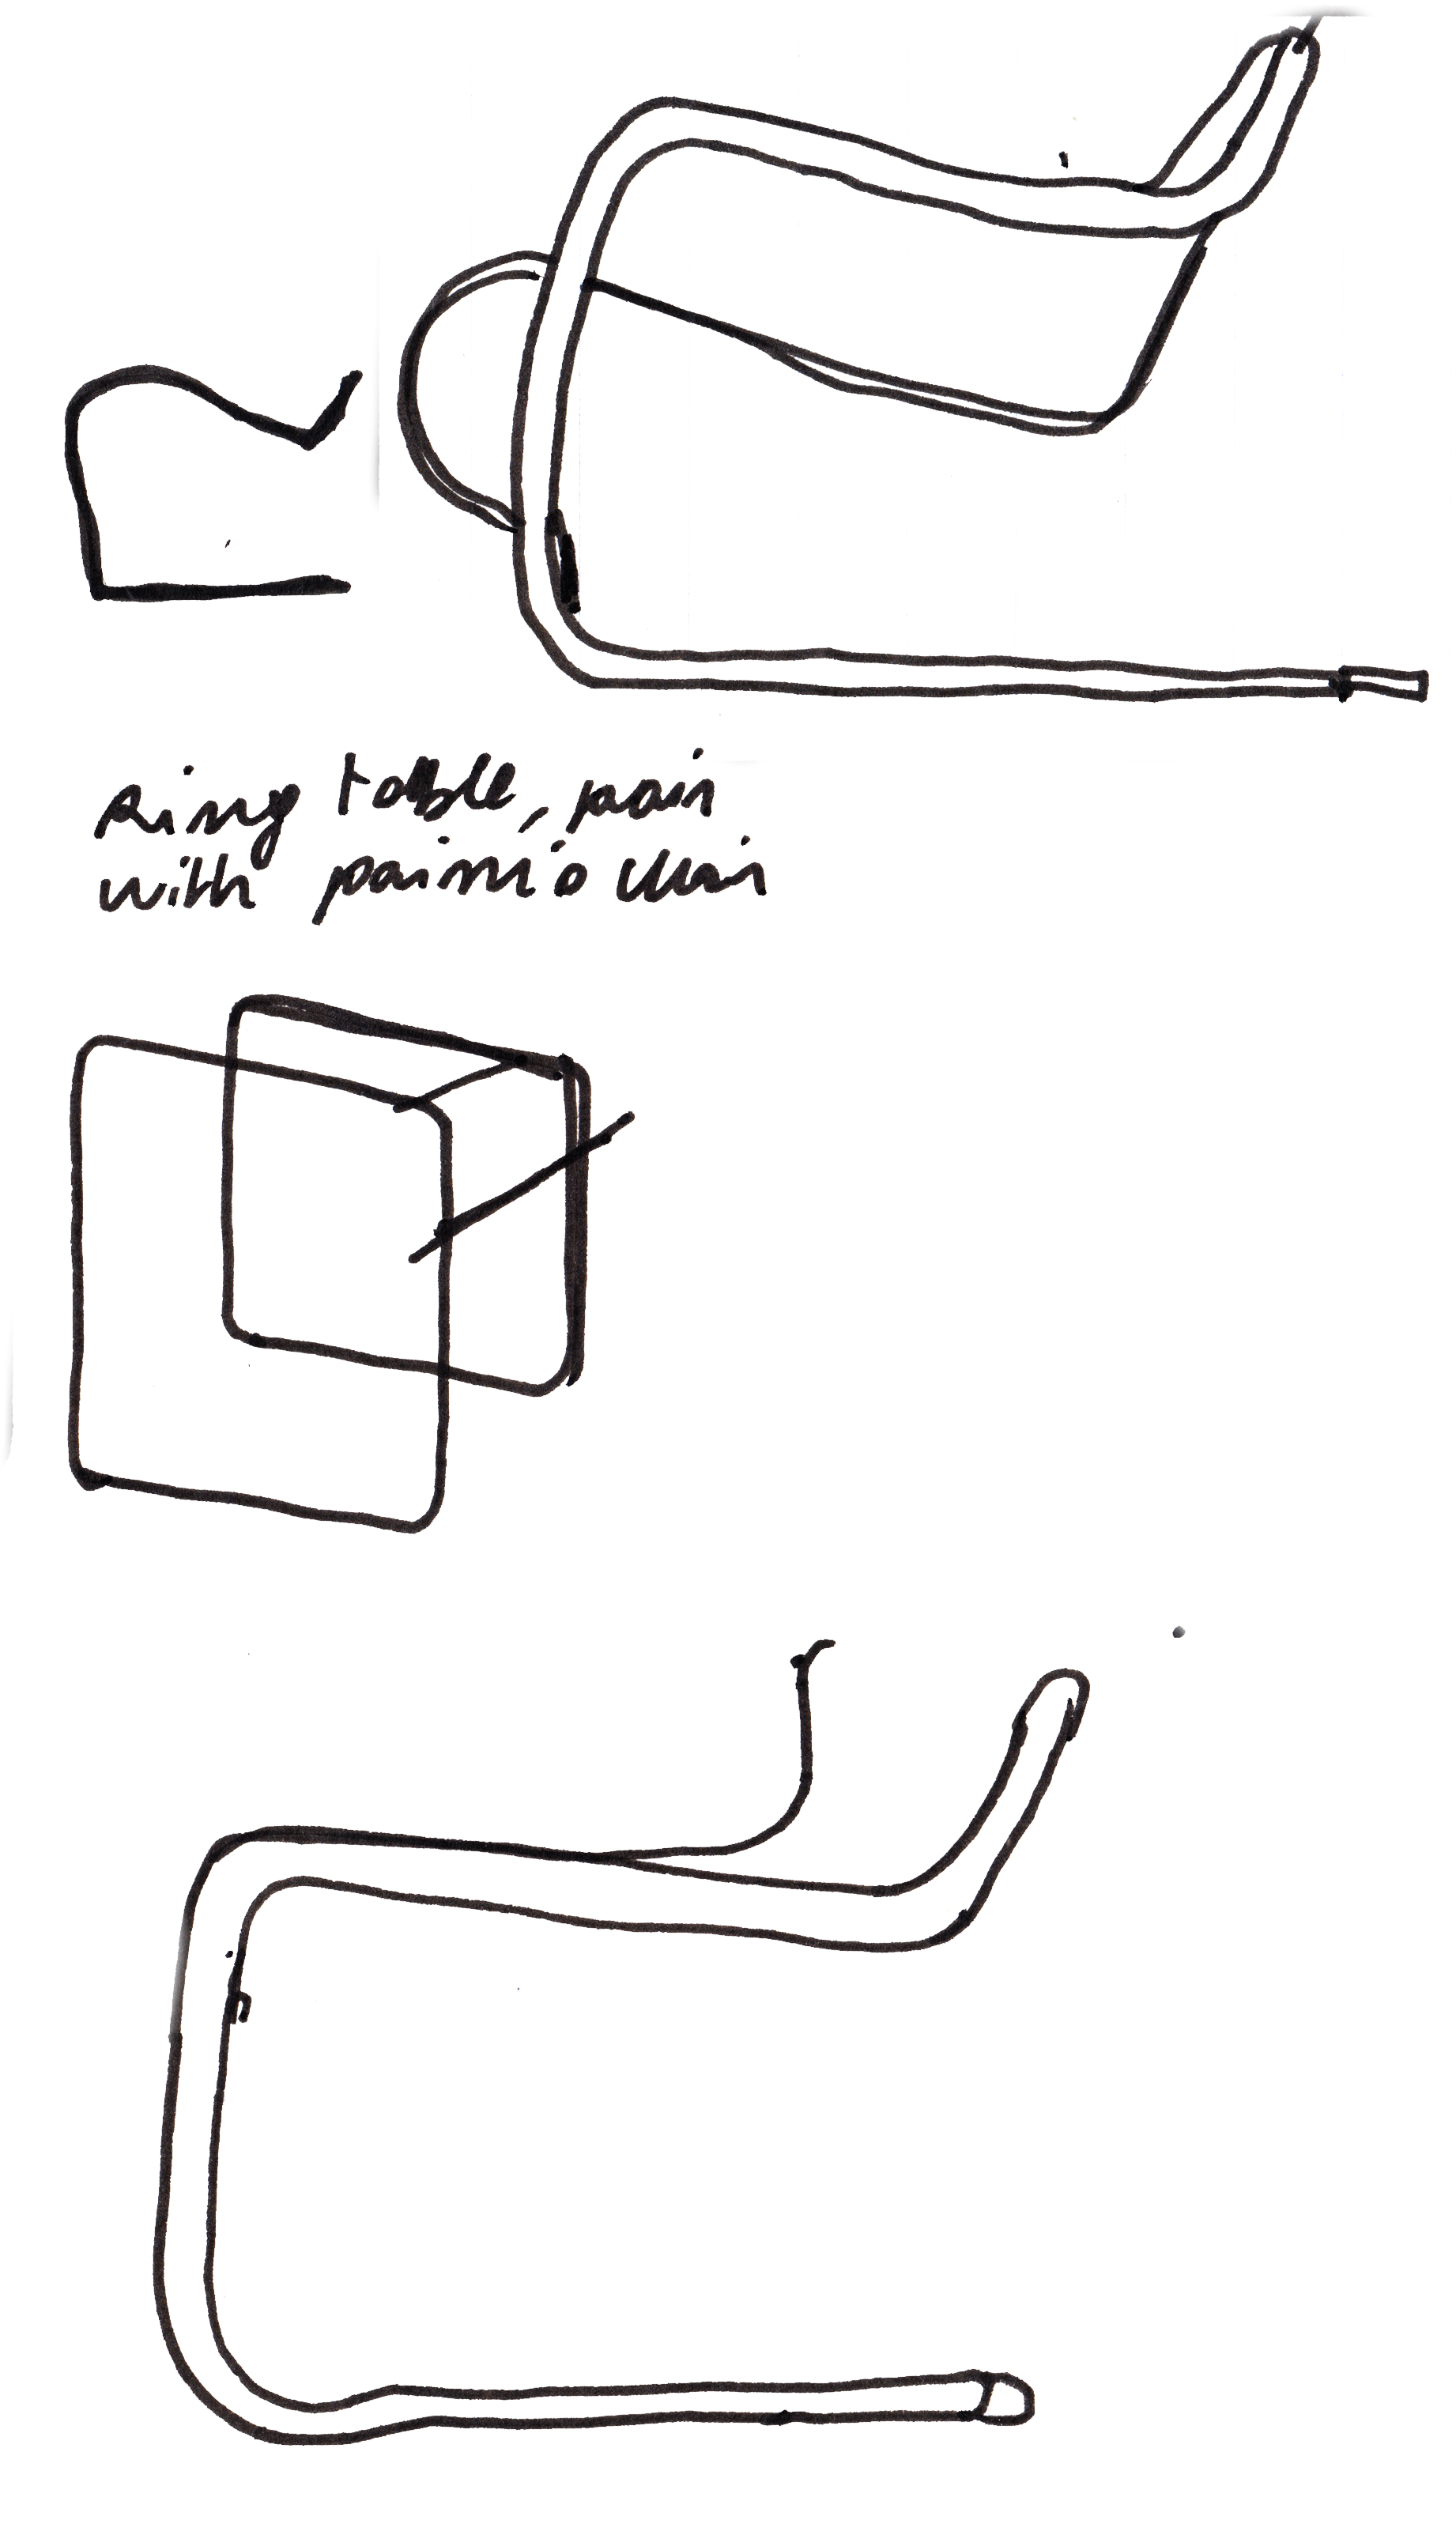 Ring table, pair
with paimio chair